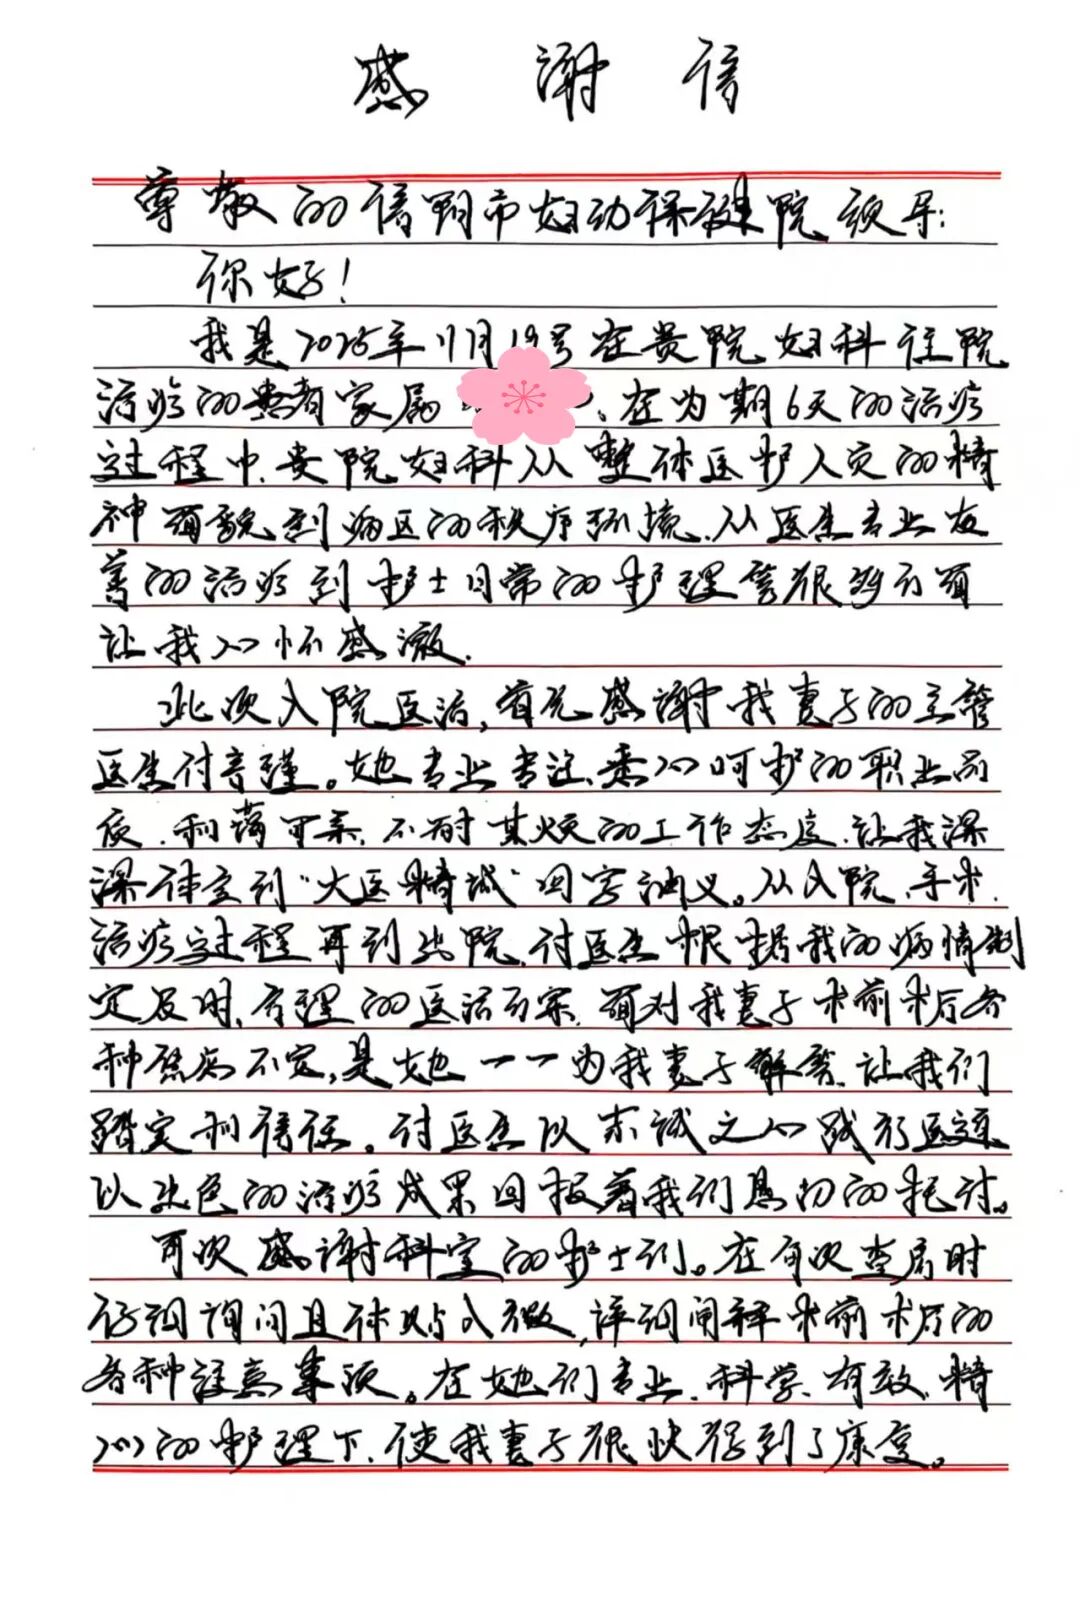 感谢信
尊敬的信阳市妇幼保健院领导:
你好!
我是2025年11月19号在贵院妇科住院
治疗的患者家属、在为期6天的治疗
过程中、贵院妇科从整体医护人员的精
神面貌到病区的秩序环境、从医生专业友
善的治疗到护士日常的护理等很多方面
让我心怀感激.
此次入院医治,首先感谢我妻子的主管
医生付音瑾。她专业专注、悉心呵护的职业品
质、和蔼可亲、不耐其烦的工作态度、让我深
深体会到“大医精诚”四字涵义。从入院、手术、
治疗过程再到出院、付医生根据我的病情制
定及时、合理的医治方案、面对我妻子术前术后各
种焦虑不定,是她一一为我妻子解答、让我们
踏实和信任。付医生以赤诚之心践行医道
以出色的治疗成果回报着我们恳切的托付。
再次感谢科室的护士们。在每次查房时
仔细询问且体贴入微,详细阐释术前术后的
各种注意事项。在她们专业、科学、有效、精
心的护理下、使我妻子很快得到了康复。